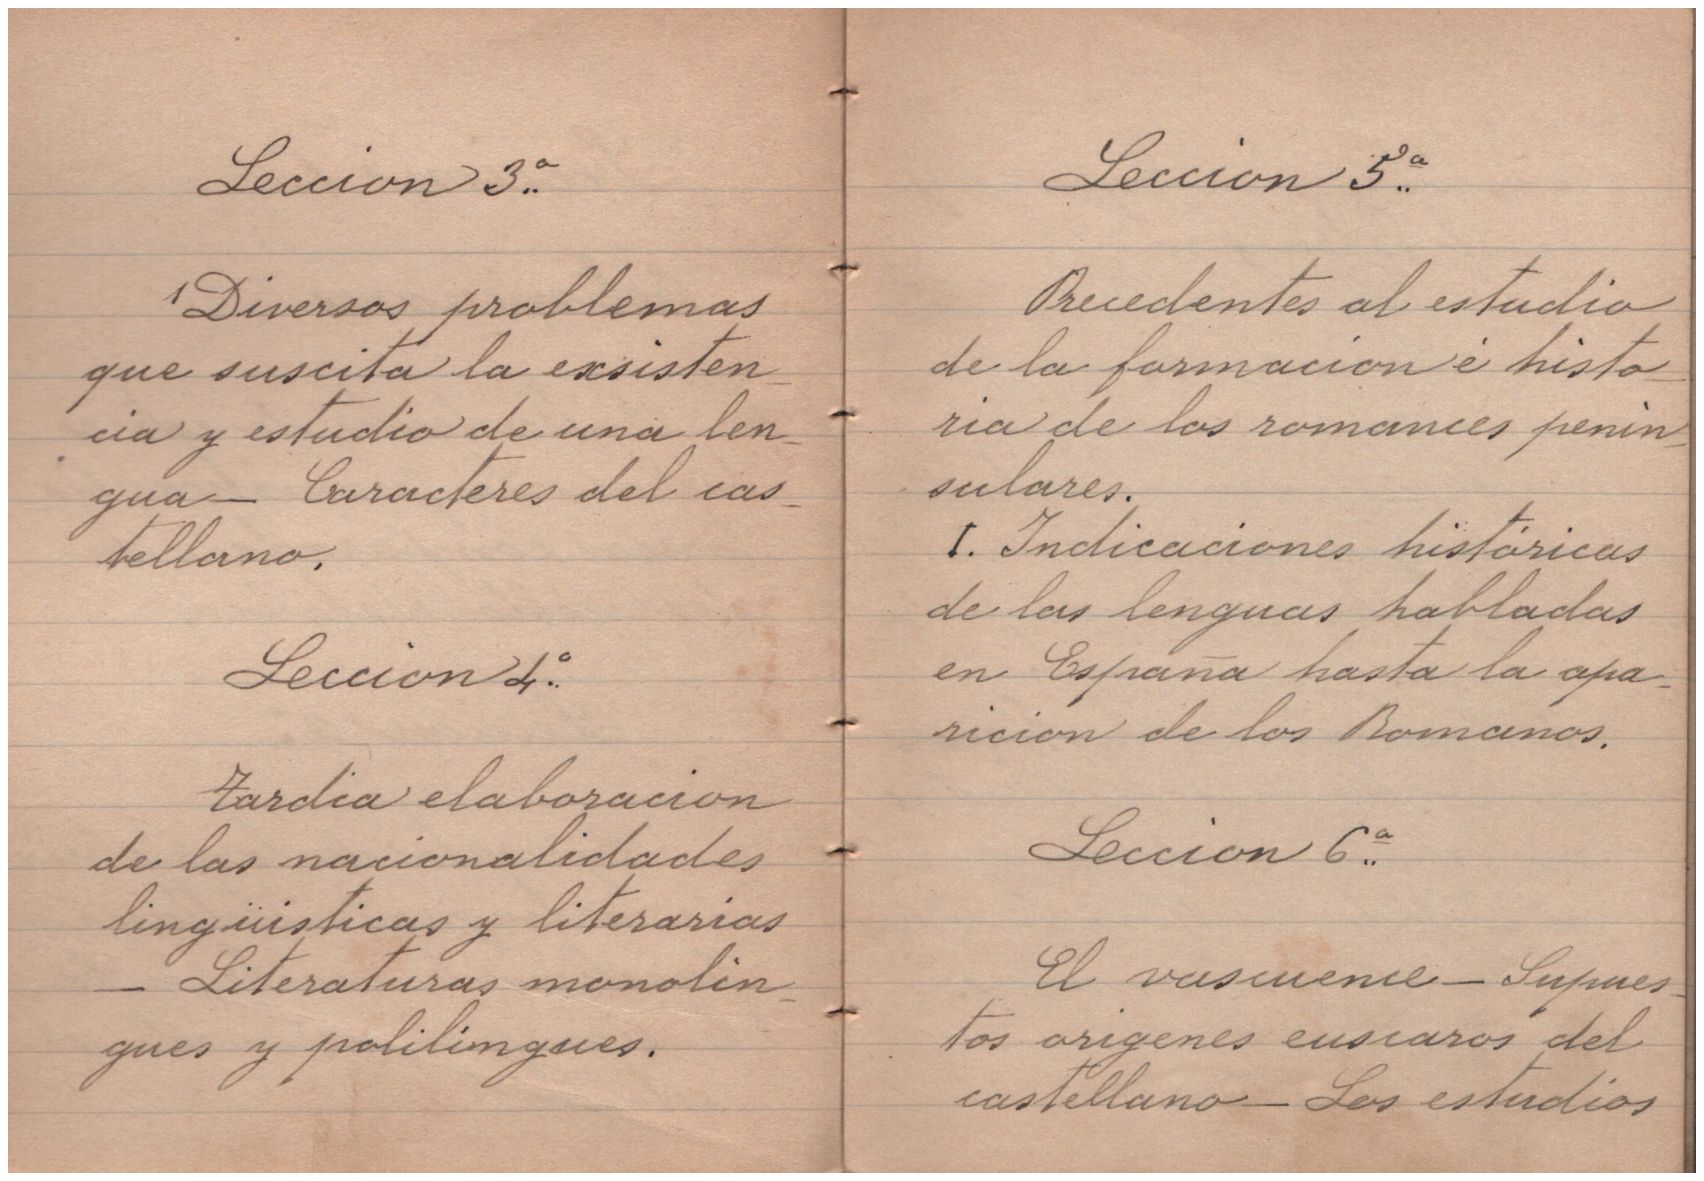 Leccion 3ª
1 Diversos problemas
que suscita la exsisten-
cia y estudio de una len-
gua — Caracteres del cas-
tellano.
Leccion 4ª
Tardia elaboracion
de las nacionalidades
lingüisticas y literarias
— Literaturas monolin-
gues y polilingues.
Leccion 5ª
Precedentes al estudio
de la formacion é histo-
ria de los romances penin-
sulares.
I. Indicaciones históricas
de las lenguas habladas
en España hasta la apa-
ricion de los Romanos.
Leccion 6ª
El vascuence — Supues-
tos origenes euscaros del
castellano — Los estudios